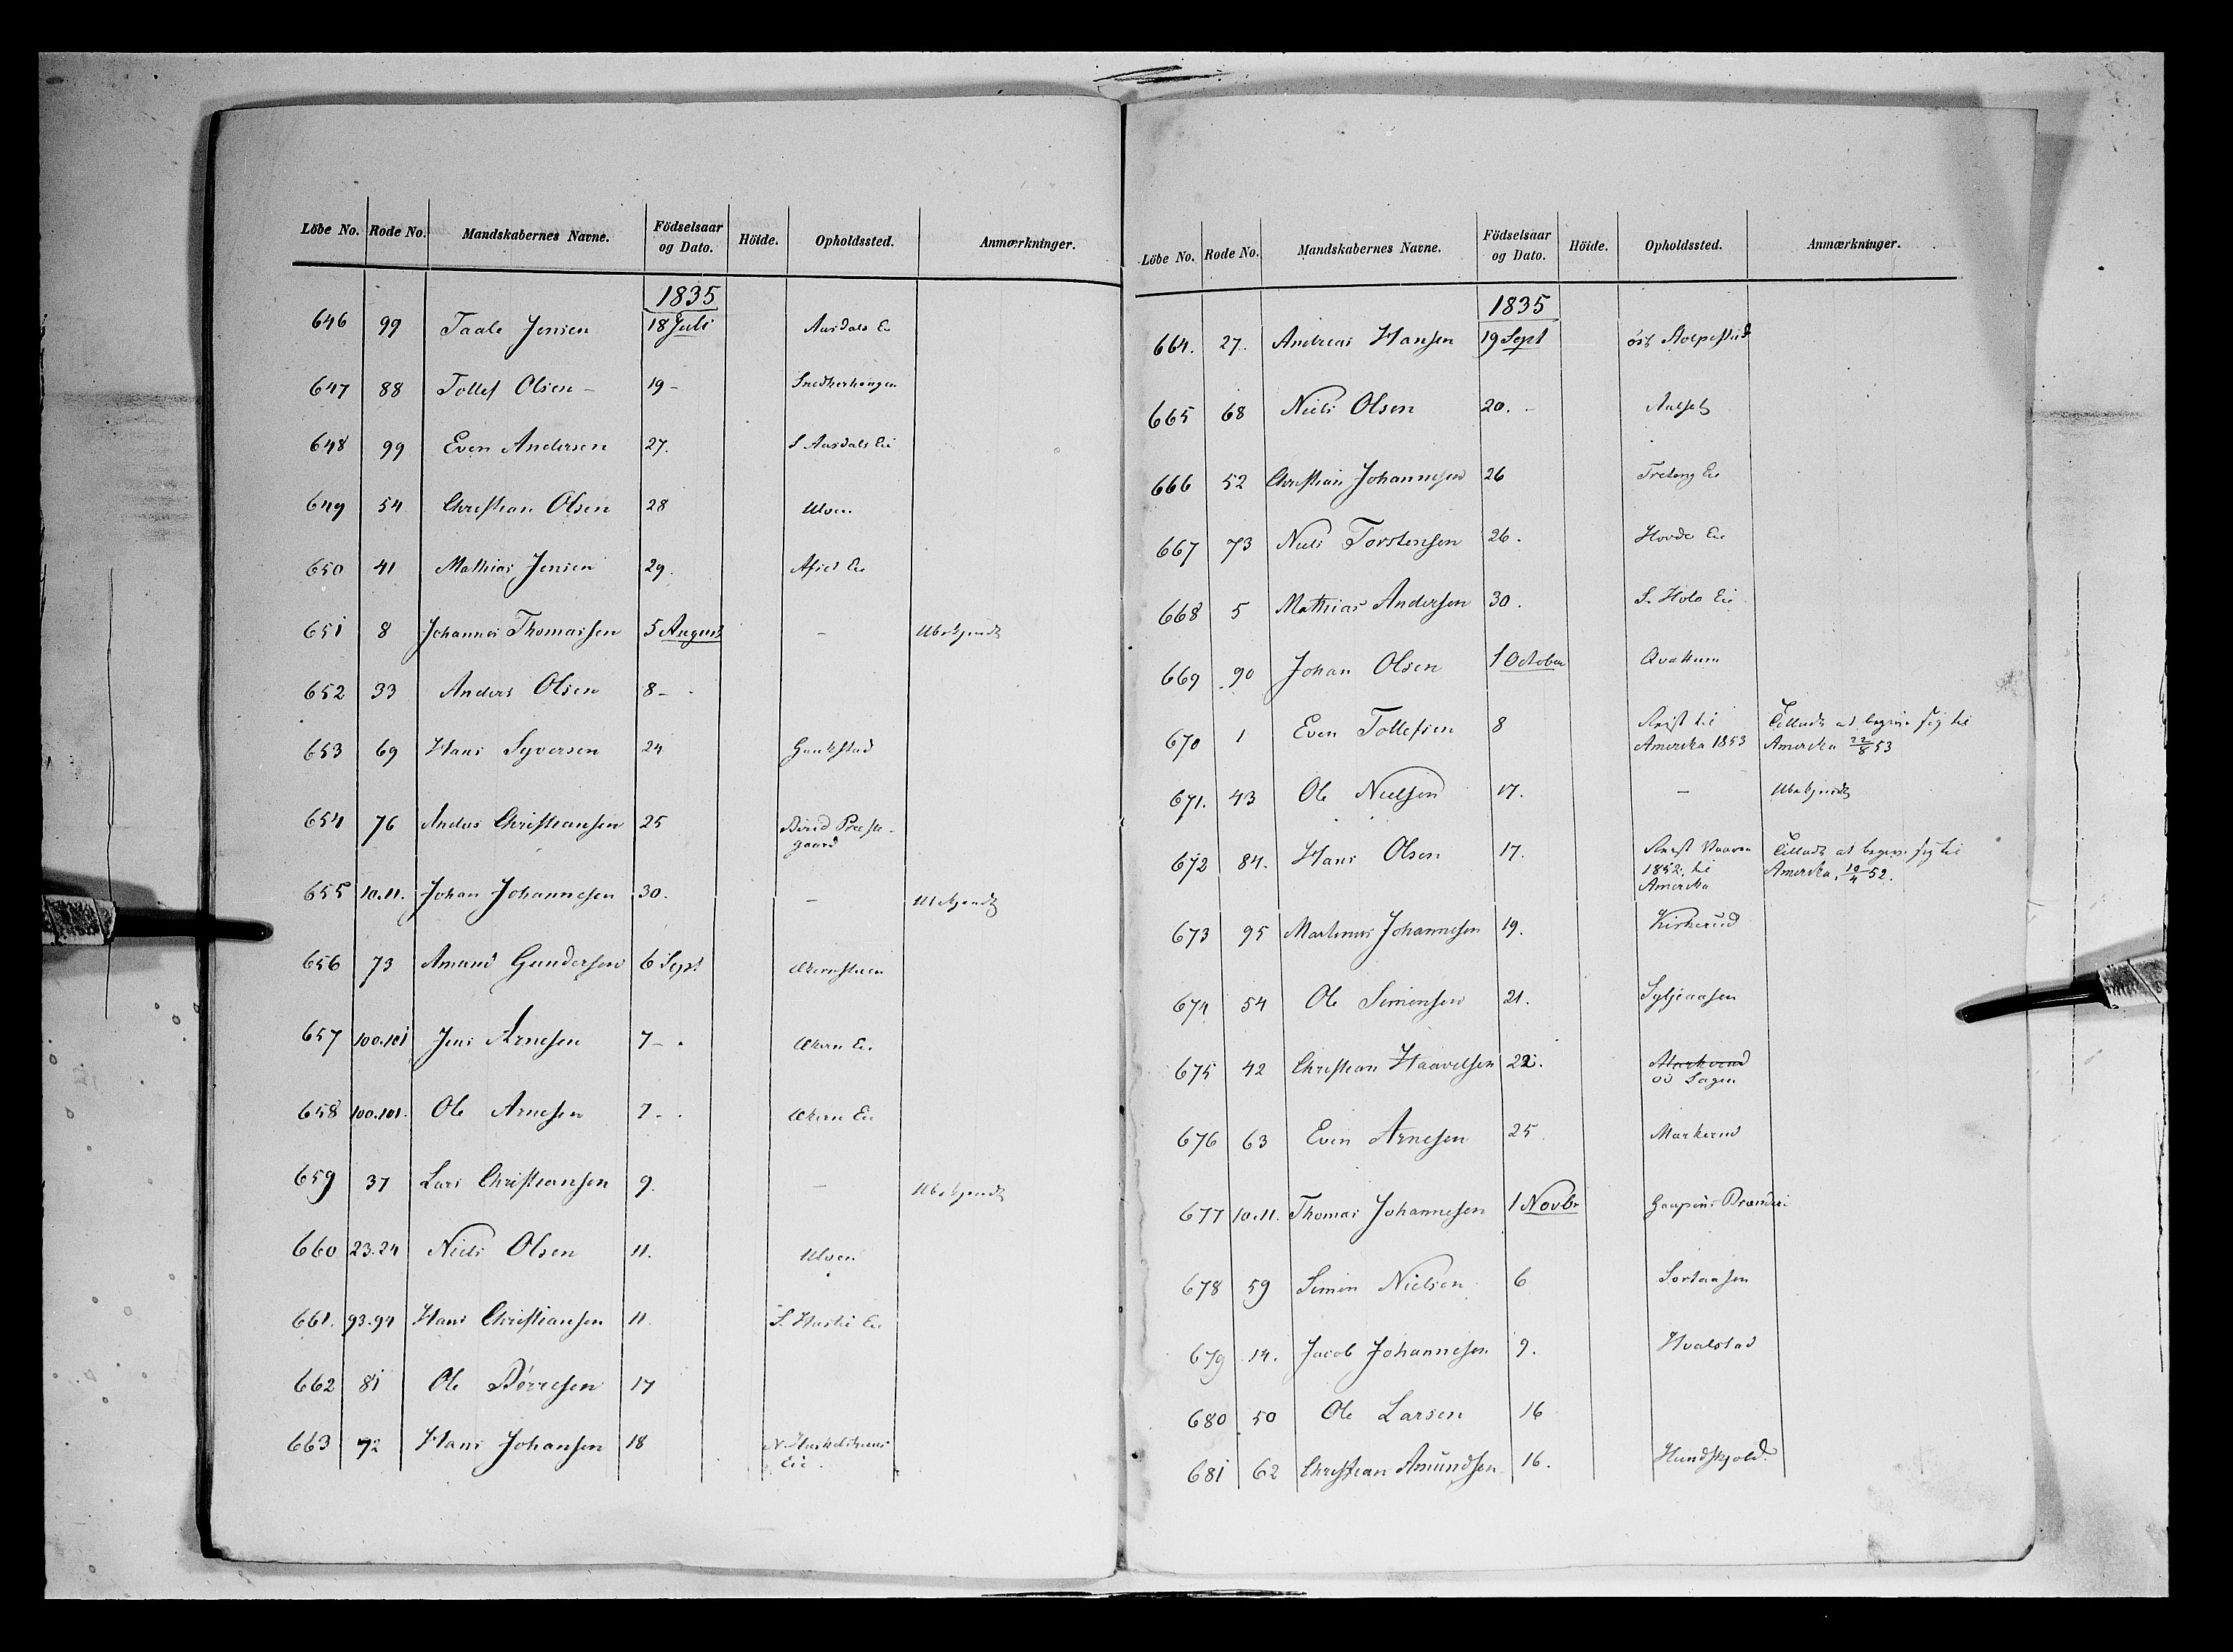 Löbe No. Rode No. Mandskabernes Navne. Födselsaar og Dato. Höide. Opholdssted. Anmærkninger.
1835
646 99 Taale Jensen 18 Juli Aasdals Ei
647 88 Tollef Olsen - 19 -
648 99 Even Andersen 27. S Aasdals Eie
649 54 Christian Olsen 28 Ulven
650 41 Mathias Jensen 29. Ei
651 8 Johannes Thomassen 5 August - Ubekjendt
652 33 Anders Olsen 8 -
653 69 Hans Syversen 24 Gaukstad
654 76 Anders Christiansen 25 Biri Præste-
gaard
655 10.11. Johan Johannesen 30. - Ubekjendt
656 73 Amund Gundersen 6 Sept
657 100.101 Jens Arnesen 7 - . Økern Ei.
658 100.101. Ole Arnesen 7 - . Økern Ei
659 37 Lars Christiansen 9. - Ubekjendt
660 23.24 Niels Olsen 11. Ulven
661. 93.94 Hans Christiansen 11. S. Ei
662 81 Ole Børresen 17
663 72 Hans Johansen 18 N.
Eie.
Löbe No. Rode No. Mandskabernes Navne. Födselsaar og Dato. Höide. Opholdssted. Anmærkninger.
1835
664. 27. Andreas Hansen 19 Sept
665 68 Niels Olsen 20. - Aalset
666 52 Christian Johannesen 26 Ei
667 73 Niels Torstensen 26. Hovde Eie
668 5 Mathias Andersen 30. S. Holo Eie
669 90 Johan Olsen 1 October Qvækum
670 1 Even Tollefsen 8 Reist til Tilladt at begive sig til
Amerika 1853 Amerika 22/8 53
671. 43 Ole Nielsen 17. - Ubekjendt
672 84. Hans Olsen 17. Reist Vaaren Tilladt at begive sig til
1852. til Amerika. 10/4 52.
Amerika
673 95 Martinus Johannesen 19. Kirkerud
674 54 Ole Simensen 21. Syljeaasen
675 42 Christian Haavelsen 22. Markerud
Sagen
676 63 Even Arnesen 25. Markerud
677 10.11. Thomas Johannesen 1 Novbr
678 59 Simen Nielsen 6 Sortaasen
679 14. Jacob Johannesen 9. Hvalstad
680 50 Ole Larsen 16
681 62 Christian Amundsen 16. Hundskjold.